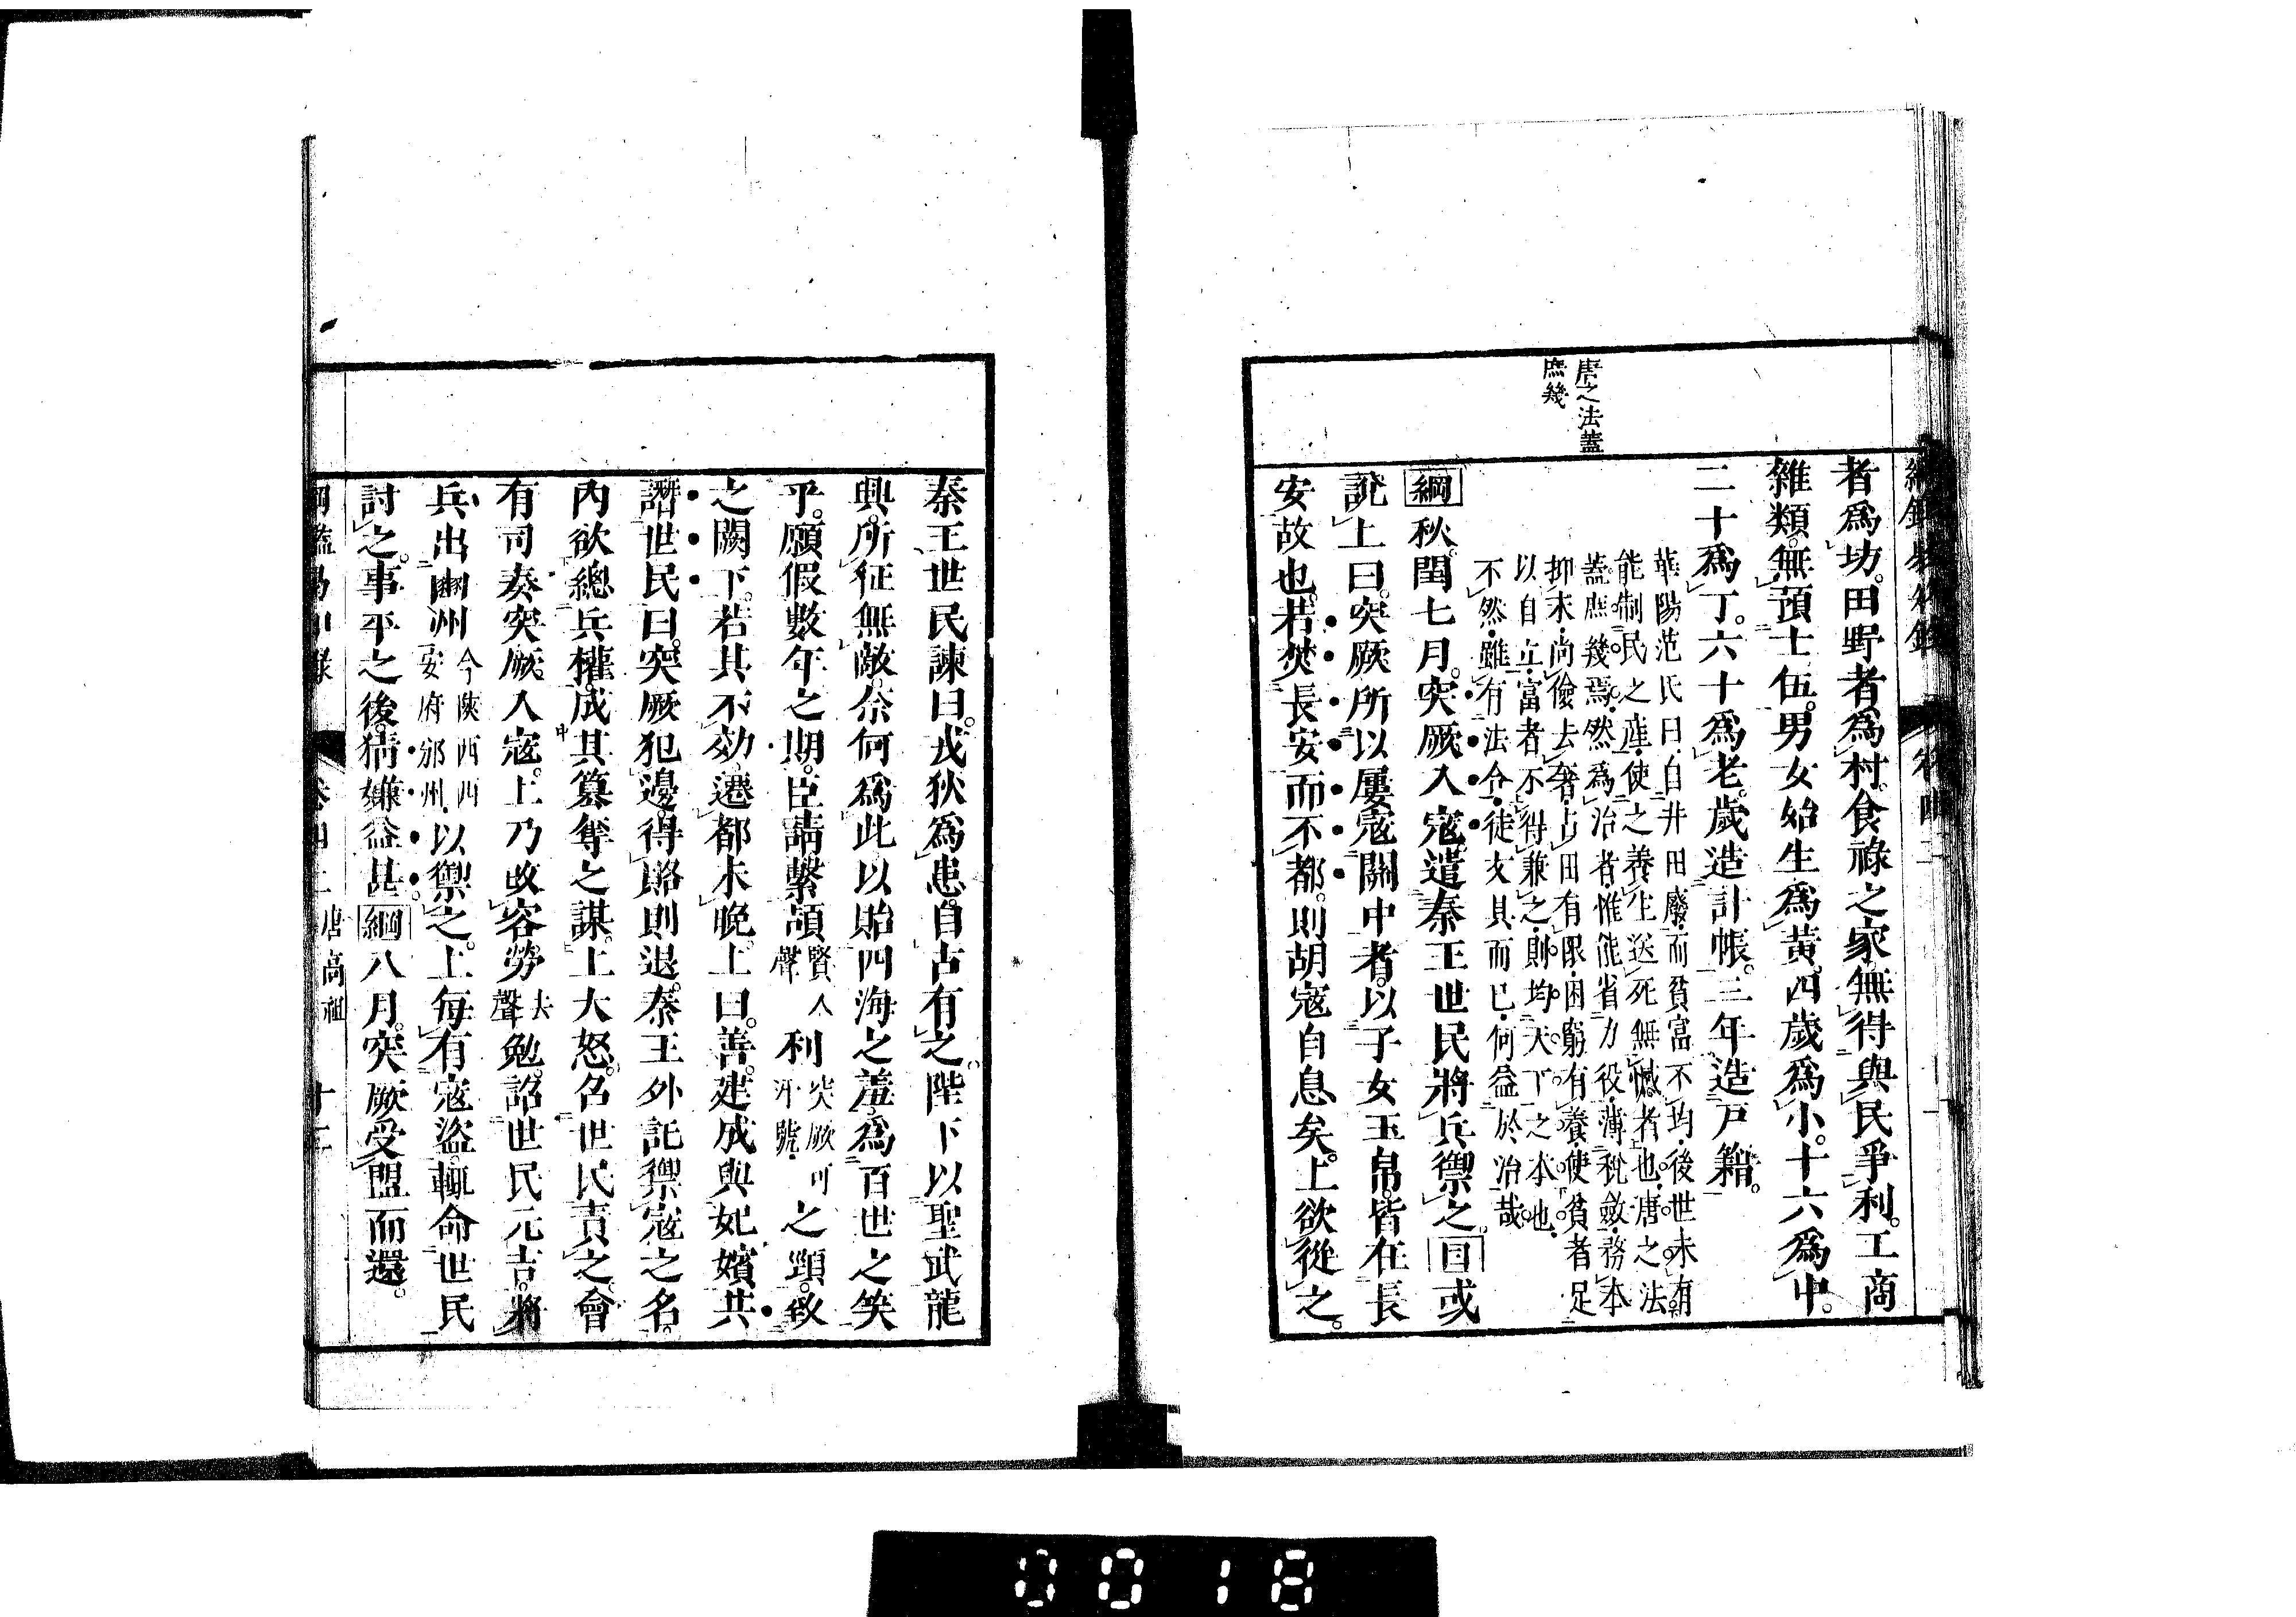 唐之法蓋
庶幾
者爲坊。田野者爲村。食祿之家。無得與民爭利。工商
雜類。無預士伍。男女始生爲黃。四歲爲小。十六爲中。
二十爲丁。六十爲老。歲造計帳。三年造戸籍。
華陽范氏曰。自井田廢。而貧富不均。後世未有
能制民之產。使之養生送死無憾者也。唐之法。
蓋庶幾焉。然爲治者。惟能省力役。薄稅斂。務本
抑末。尚儉去奢。占田有限。困窮有養。使貧者足
以自立。富者不得兼之。則均天下之本也。
不然。雖有法令。徒文具而已。何益於治哉。
綱秋。閏七月。突厥入寇。遣秦王世民將兵禦之。目或
說上曰。突厥所以屢寇關中者。以子女玉帛。皆在長
安故也。若焚長安而不都。則胡寇自息矣。上欲從之。
秦王世民諫曰。戎狄爲患。自古有之。陛下以聖武龍
興。所征無敵。奈何爲此以貽四海之羞。爲百世之笑
乎。願假數年之期。臣請繫頡賢入聲利突厥可汗號。之頸。致
之闕下。若其不効。遷都未晚。上曰。善。建成與妃嬪共
譖世民曰。突厥犯邊。得賂則退。秦王外託禦寇之名。
內欲總兵權。成其簒奪之謀。上大怒。召世民責之。會
有司奏突厥入寇。上乃改容。勞去聲勉。詔世民元吉。將
兵出豳州今陝西西安府邠州。以禦之。上每有寇盜。輒命世民
討之。事平之後。猜嫌益甚。綱八月。突厥受盟而還。
卷四二 唐高祖 十三